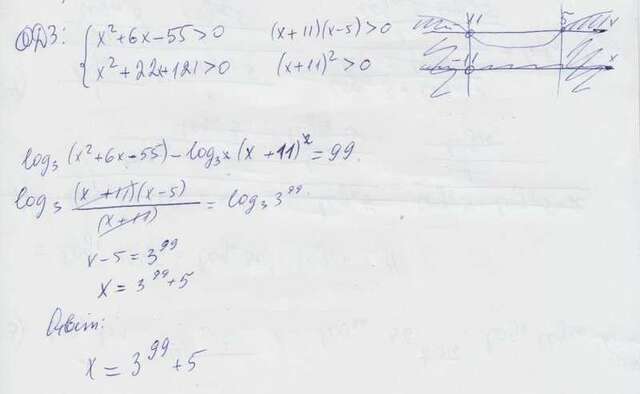 ОДЗ: { x² + 6x - 55 > 0 (x + 11)(x - 5) > 0
x² + 22x + 121 > 0 (x + 11)² > 0
-11 5 x
-11 x
log₃ (x² + 6x - 55) - log₃² (x + 11)² = 99.
log₃ (x + 11)(x - 5) / (x + 11) = log₃ 3⁹⁹
x - 5 = 3⁹⁹
x = 3⁹⁹ + 5
Ответ:
x = 3⁹⁹ + 5